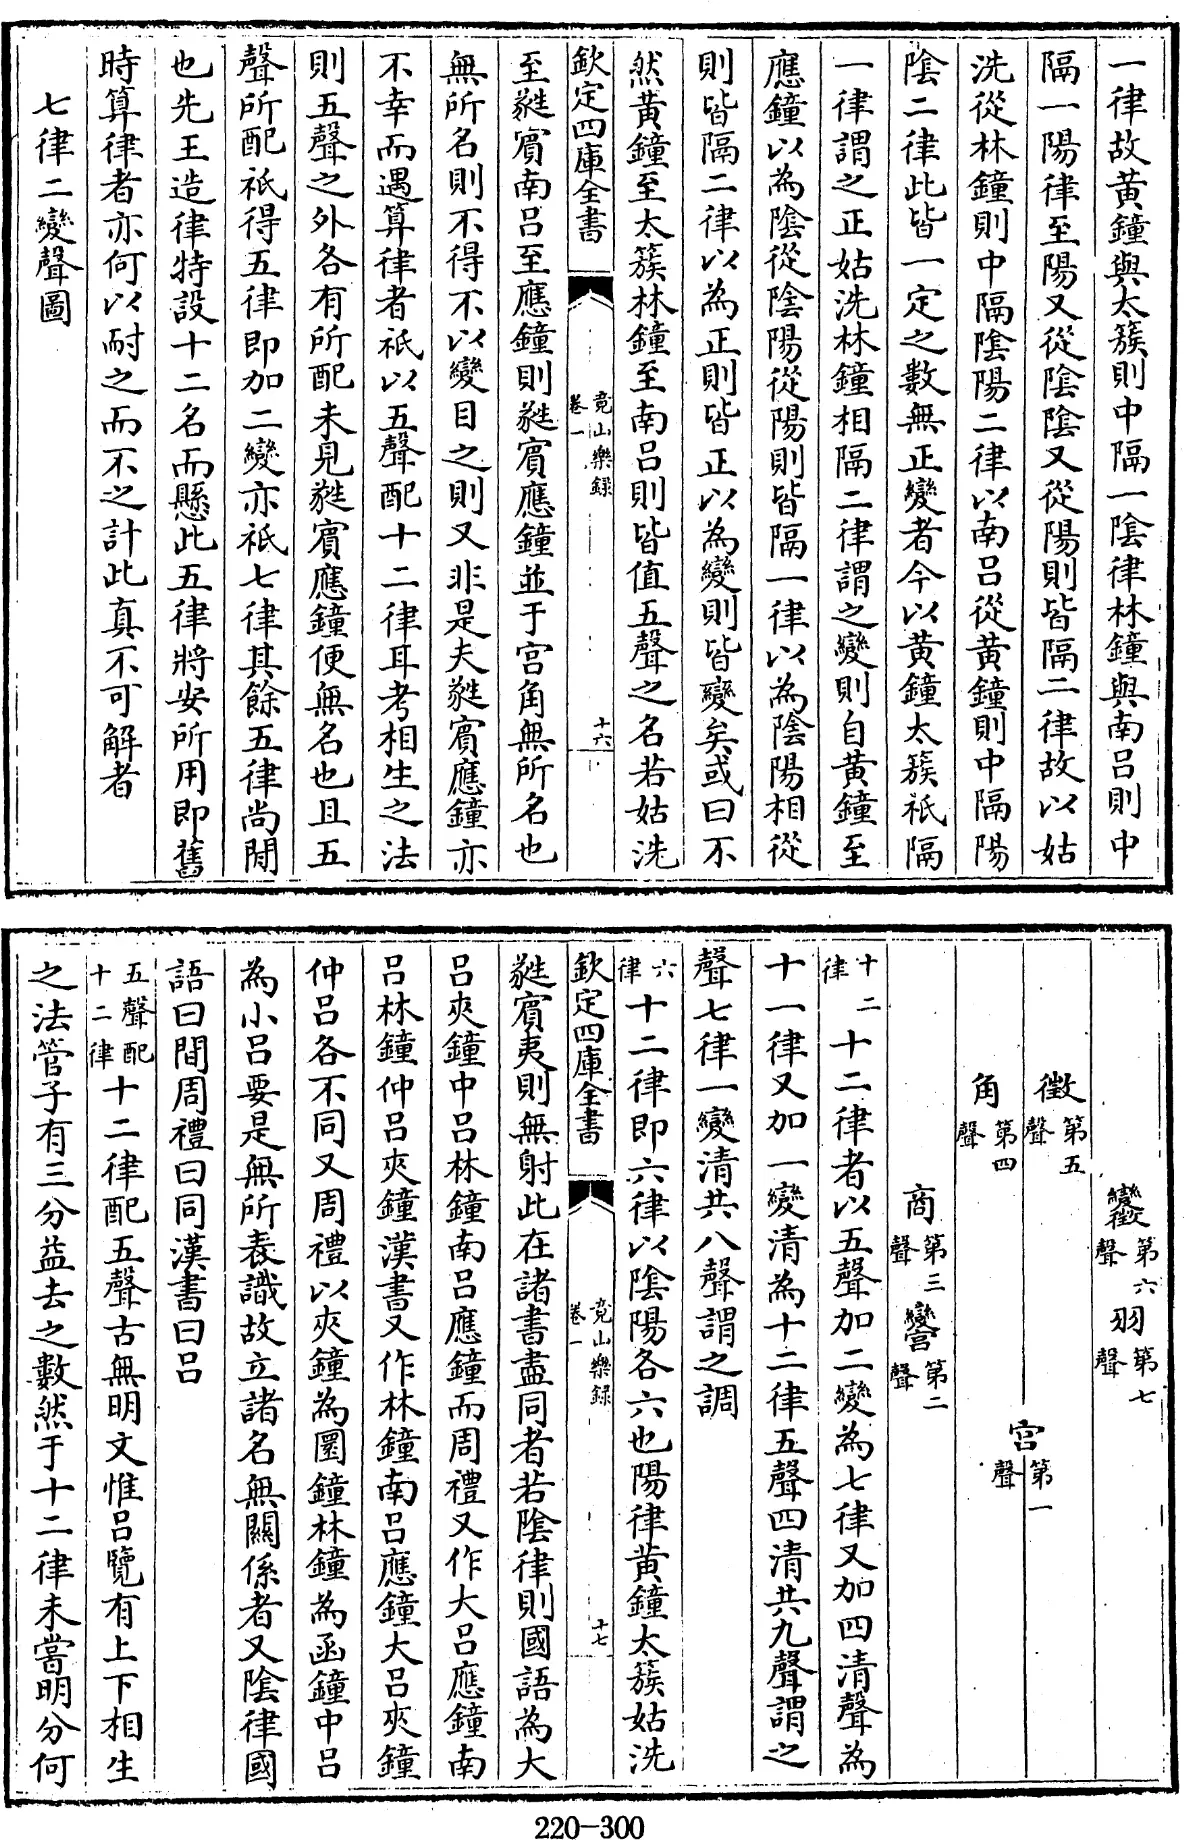 一律故黃鐘與太簇則中隔一陰律林鐘與南呂則中
隔一陽律至陽又從陰陰又從陽則皆隔二律故以姑
洗從林鐘則中隔陰陽二律以南呂從黃鐘則中隔陽
陰二律此皆一定之數無正變者今以黃鐘太簇祇隔
一律謂之正姑洗林鐘相隔二律謂之變則自黃鐘至
應鐘以為陰從陰陽從陽則皆隔一律以為陰陽相從
則皆隔二律以為正則皆正以為變則皆變矣或曰不
然黃鐘至太簇林鐘至南呂則皆值五聲之名若姑洗
欽定四庫全書
竟山樂錄
卷一
十六
至蕤賓南呂至應鐘則蕤賓應鐘並于宮角無所名也
無所名則不得不以變目之則又非是夫蕤賓應鐘亦
不幸而遇算律者祇以五聲配十二律耳考相生之法
則五聲之外各有所配未見蕤賓應鐘便無名也且五
聲所配祇得五律即加二變亦祇七律其餘五律尚閒
也先王造律特設十二名而懸此五律將安所用即舊
時算律者亦何以耐之而不之計此真不可解者
七律二變聲圖
變徵第六聲 羽第七聲
徵第五聲
宮第一聲
角第四聲
商第三聲 變宮第二聲
十二律 十二律者以五聲加二變為七律又加四清聲為
十一律又加一變清為十二律五聲四清共九聲謂之
聲七律一變清共八聲謂之調
六律 十二律即六律以陰陽各六也陽律黃鐘太簇姑洗
欽定四庫全書
竟山樂錄
卷一
十七
蕤賓夷則無射此在諸書盡同者若陰律則國語為大
呂夾鐘中呂林鐘南呂應鐘而周禮又作大呂應鐘南
呂林鐘仲呂夾鐘漢書又作林鐘南呂應鐘大呂夾鐘
仲呂各不同又周禮以夾鐘為圜鐘林鐘為函鐘中呂
為小呂要是無所表識故立諸名無關係者又陰律國
語曰間周禮曰同漢書曰呂
五聲配十二律 十二律配五聲古無明文惟呂覽有上下相生
之法管子有三分益去之數然于十二律未嘗明分何
220-300